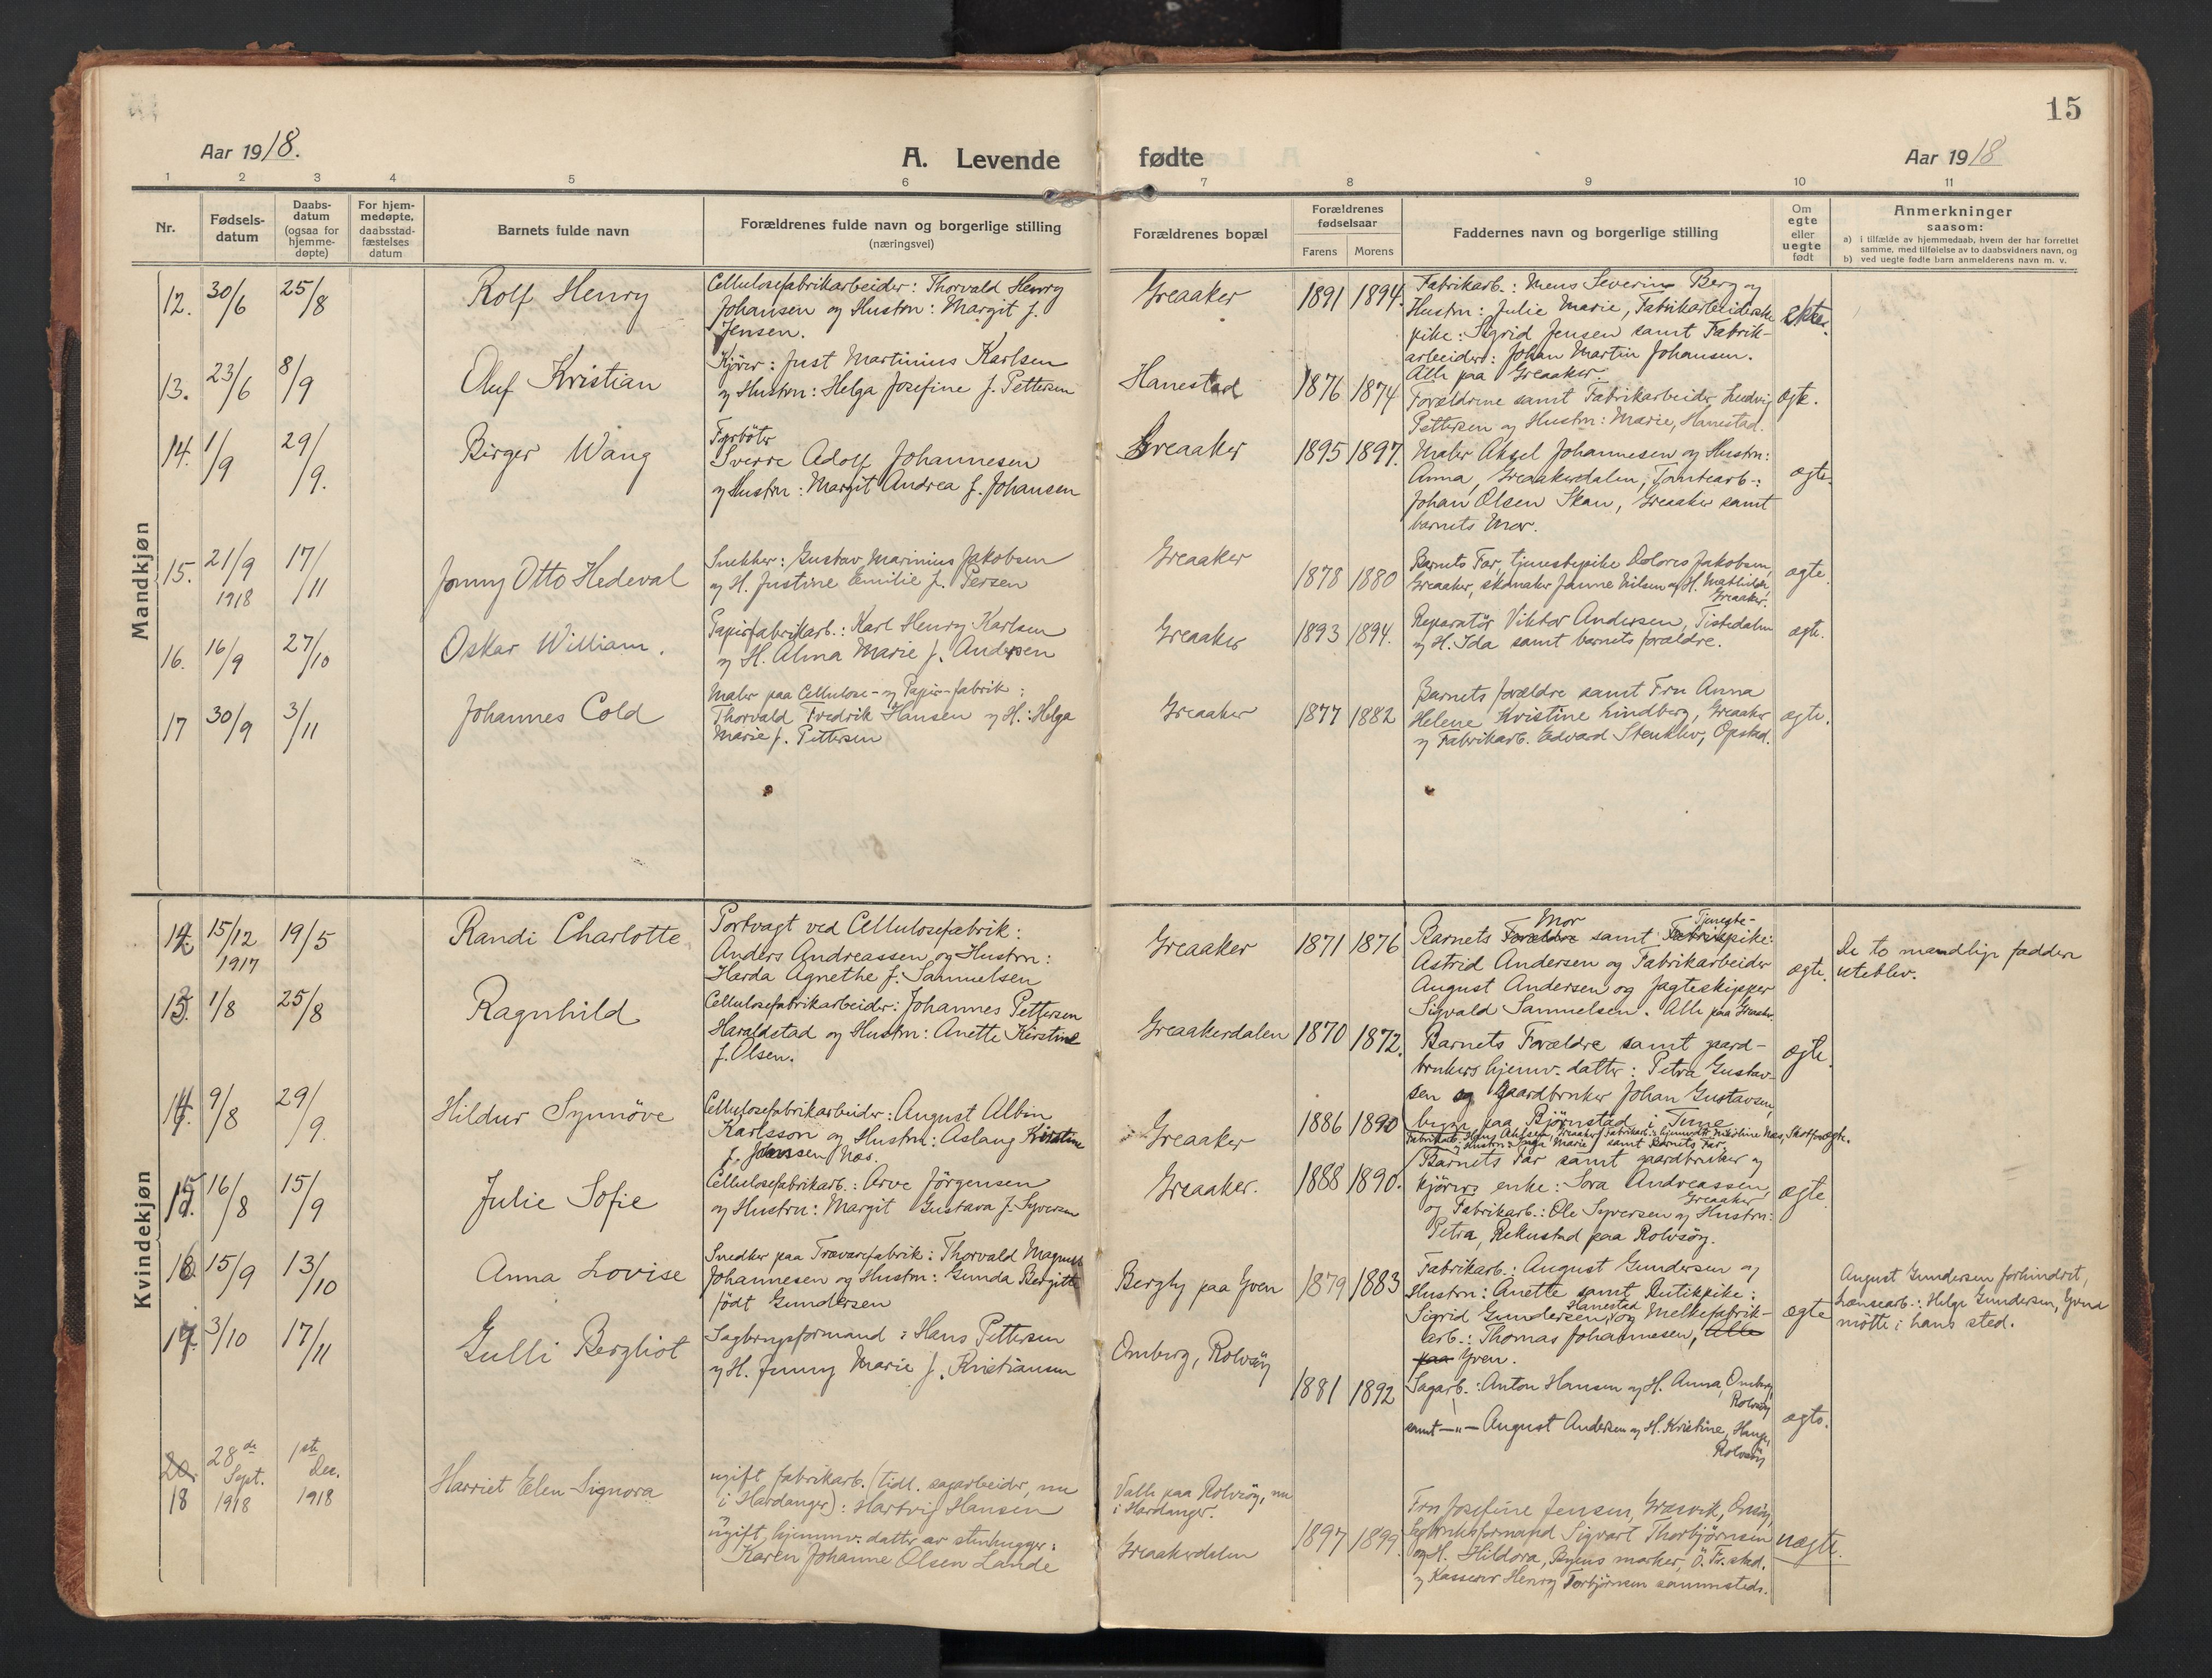 15
Aar 1918.
A. Levende fødte
Aar 1918
1 2 3 4 5 6 7 8 9 10 11
Nr.
Fødsels-
datum
Daabs-
datum
(ogsaa for
hjemme-
døpte)
For hjem-
medøpte,
daabsstad-
fæstelses
datum
Barnets fulde navn
Forældrenes fulde navn og borgerlige stilling
(næringsvei)
Forældrenes bopæl
Forældrenes
fødselsaar
Farens Morens
Faddernes navn og borgerlige stilling
Om
egte
eller
uegte
født
Anmerkninger
saasom:
a) i tilfælde av hjemmedaab, hvem der har forrettet
samme, med tilføielse av to daabsvidners navn, og
b) ved uegte fødte barn anmelderens navn m. v.
Mandkjøn
12. 30/6 25/8
Rolf Henry
Cellulosefabrikarbeider: Thorvald Henry
Johansen og Hustru: Margit f.
Jensen.
Greaaker
1891 1894.
Fabrikarb.: Mens Severin Berg og
Hustru: Julie Marie, Fabrikarbeiderske
pike: Sigrid Jensen samt Fabrik-
arbeider: Johan Martin Johansen.
Alle paa Greaaker.
ekte.
13. 23/6 8/9
Oluf Kristian
Kjörer: Just Martinius Karlsen
og Hustru: Helga Josefine f. Pettersen
Hanestad
1876 1874
Forældrene samt Fabrikarbeider Ludvig
Pettersen og Hustru: Marie, Hanestad.
egte.
14. 1/9 29/9.
Birger Wang
Fyrböter
Sverre Adolf Johannesen
og Hustru: Margit Andrea f. Johansen
Greaaker
1895 1897.
Maler Aksel Johannesen og Hustru:
Anna, Greaakerdalen, Tomtearb.:
Johan Olsen Skau, Greaaker samt
barnets Mor.
egte.
15. 21/9 1918 17/11
Jonny Otto Hedeval
Snekker: Gustav Marinius Jakobsen
og H. Justine Emilie f. Persen
Greaaker
1878 1880
Barnets Far, tjenestepike Dolores Jakobsen,
Greaaker, skomaker Janne Nilsen og H. Mathilde,
Greaaker.
egte.
16. 16/9 27/10
Oskar William.
Papirfabrikarb.: Karl Henry Karlsen
og H. Alma Marie f. Andersen
Greaaker
1893 1894.
Reparatör Viktor Andersen, Tistedalen
og H. Ida samt barnets forældre.
egte.
17 30/9 3/11
Johannes Cold
Maler paa Cellulose- og Papir-fabrik:
Thorvald Fredrik Hansen og H.: Helga
Marie f. Pettersen
Greaaker
1877 1882
Barnets forældre samt Fru Anna
Helene Kristine Lindberg, Greaaker
og Fabrikarb. Edvard Stenklev, Opstad.
egte.
Kvindekjøn
12. 15/12 1917 19/5
Randi Charlotte
Portvagt ved Cellulosefabrik:
Anders Andreassen og Hustru:
Harda Agnethe f. Samuelsen
Greaaker
1871 1876
Barnets Forældre Mor samt Fabrik Tjeneste-pike:
Astrid Andersen og Fabrikarbeider
August Andersen og Jagteskipper
Sigvald Samuelsen. Alle paa Greaaker.
egte.
De to mandlige faddere
uteblev.
13. 1/8 25/8
Ragnhild
Cellulosefabrikarbeider: Johannes Pettersen
Haraldstad og Hustru: Anette Kirstine
f. Olsen.
Greaakerdalen
1870 1872.
Barnets Forældre samt gaard-
brukers hjemv. datter: Petra Gustav-
sen og Gaardbruker Johan Gustavsen,
begge paa Bjørnstad i Tune
egte.
14. 9/8 29/9.
Hildur Synnöve
Cellulosefabrikarbeider: August Albin
Karlsson og Hustru: Aslaug Kirstine
f. Jensen Næs.
Greaaker
1886 1890
samt Barnets Far.
egte.
15. 16/8 15/9
Julie Sofie
Cellulosefabrikarb.: Arve Jörgensen
og Hustru: Margit Gustava f. Syversen
Greaaker.
1888 1890.
Barnets Far samt gaardbruker og
kjörers enke: Lora Andreassen,
Greaaker
og Fabrikarb.: Ole Syversen og Hustru:
Petra, Rekustad paa Rolvsöy.
egte
16. 15/9 13/10
Anna Lovise
Snedker paa Trævarefabrik: Thorvald Magnus
Johannesen og Hustru: Gunda Bergitte
född Gundersen
Bergby paa Yven
1879 1883
Fabrikarb.: August Gundersen og
Hustru: Anette samt Butikpike:
Sigrid Gundersen, Hanestad og Melkefabrik-
arb.: Thomas Johannesen, Alle
paa Yven.
egte
August Gundersen forhindret,
Lænsearb.: Helge Gundersen, Yven
mötte i hans sted.
17. 3/10 17/11
Gulli Bergliot
Sagbrugsformand: Hans Pettersen
og H. Jenny Marie f. Kristiansen
Omberg, Rolvsöy
1881 1892
Sagarb.: Anton Hansen og H. Anna, Omberg,
Rolvsöy
samt —"— August Andersen og H. Kristine, Hauge,
Rolvsöy
egte.
20. 18 28de Sept. 1918 1ste Dec. 1918
Harriet Elen Signora
ugift fabrikarb. (tidl. sagarbeider, nu
i Hardanger): Hartvig Hansen
ugift, hjemmv. datter av stenhugger:
Karen Johanne Olsen Lande
Valle paa Rolvsöy, nu
i Hardanger.
Greaakerdalen
1897 1899.
Fru Josefine Jensen, Græsvik, Onsöy,
formand Sigvart Thorbjörnsen
og H. Hildora, Byens marker, Ö. Fr.stad.
og Kasserer Henry Torbjörnsen sammesteds.
uegte.